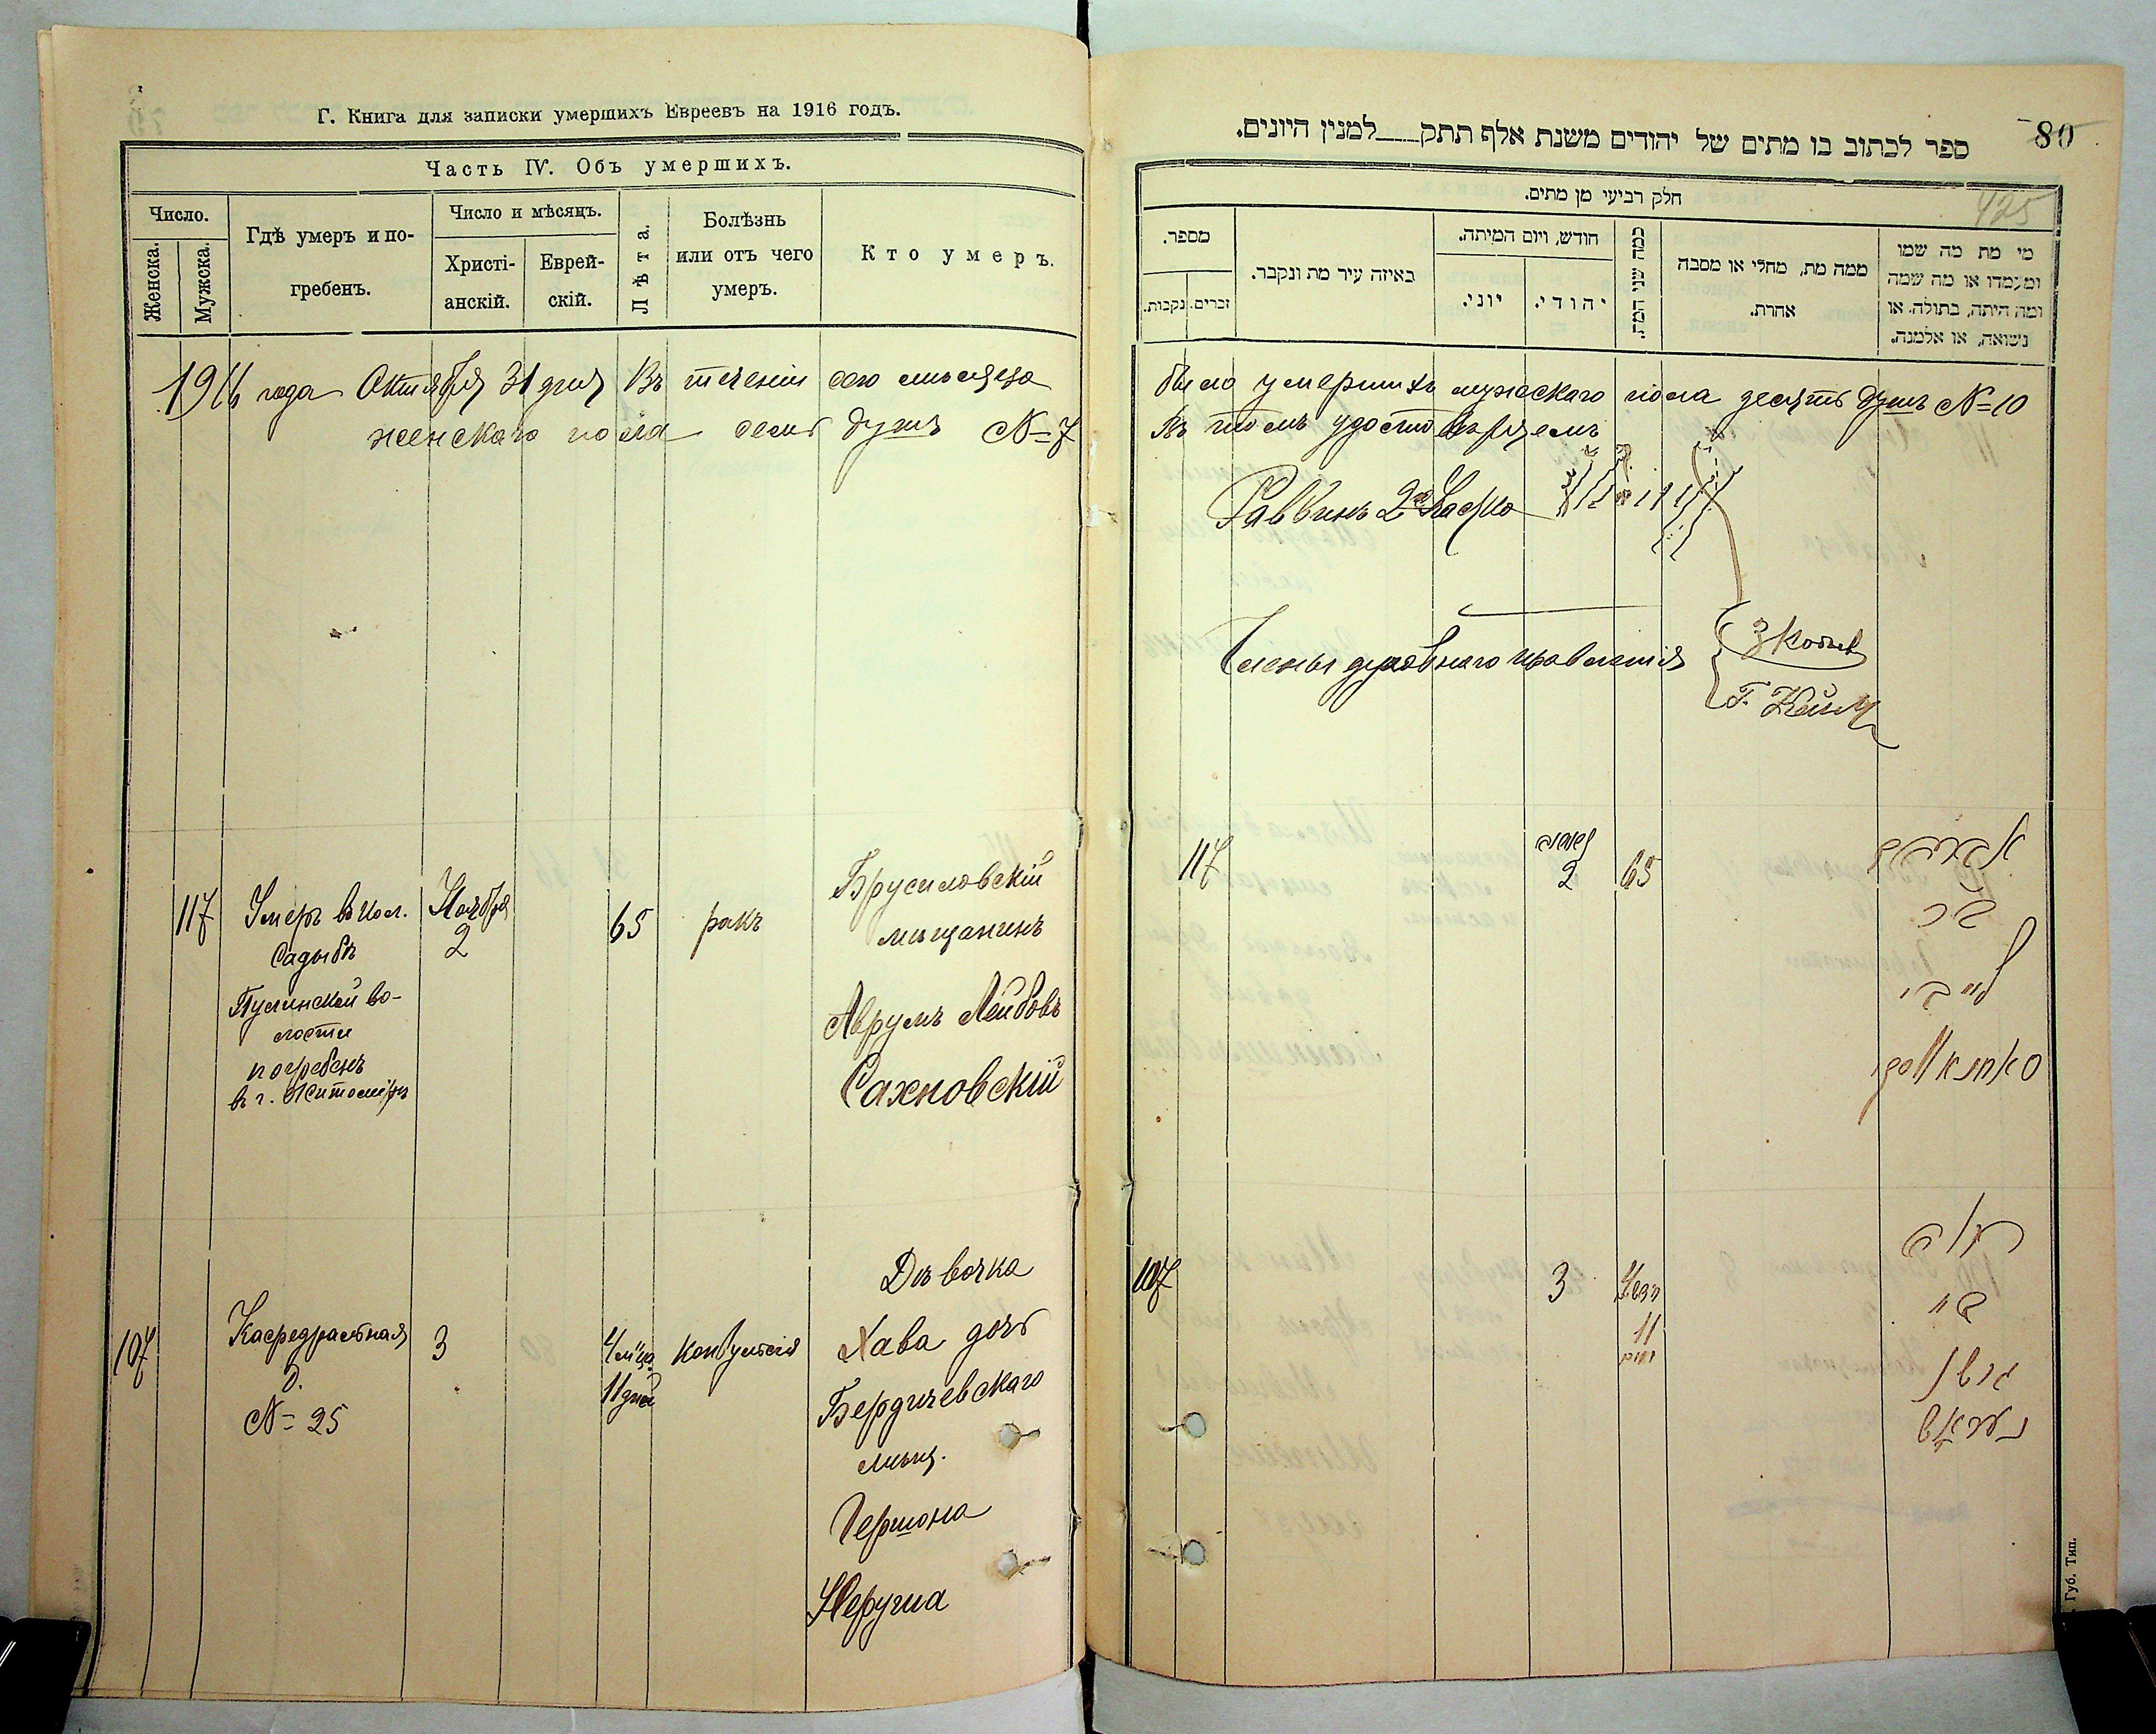 Г. Книга для записки умершихъ Евреевъ на 1916 годъ.
Часть IV. Объ умершихъ.
Число.
Женска.
Мужска.
Гдѣ умеръ и по-
гребенъ.
Число и мѣсяцъ.
Христі-
анскій.
Еврей-
скій.
Лѣта.
Болѣзнь
или отъ чего
умеръ.
Кто умеръ.
1916 года Октября 31 дня Въ теченіи сего мѣсяца
женскаго пола семь душъ №=7
117
Умеръ въ кол.
Садыбѣ
Пулинской во-
лости
погребенъ
въ г. Житомірѣ
Ноября
2
65
ракъ
Брусиловскій
мѣщанинъ
Аврумъ Лейбовъ
Сахновскій
107
Кафедральная
д.
№= 25
3
4 м-ца
11 дней
конвульсія
Дѣвочка
Хава дочь
Бердичевскаго
мѣщ.
Гершона
80
425
ספר לכתוב בו מתים של יהודים משנת אלף תתק___למנין היונים.
חלק רביעי מן מתים.
מספר.
זכרים.
נקבות.
באיזה עיר מת ונקבר.
חודש, ויום המיתה.
יוני.
יהודי.
כמה שני המת.
ממה מת, מחלי או מסבה
אחרת.
מי מת מה שמו
ומעמדו או מה שמה
ומה היתה, בתולה. או
נשואה, או אלמנה.
было умершихъ мужескаго пола десять душъ №=10
Въ томъ удостовѣряемъ
Раввинъ 2го
Члены духовнаго правленія
117
2
65
אברהם
בר
לייבי
סאחנאווסקי
107
3
4
11
חוה
בת
גרשון
Губ. Тип.